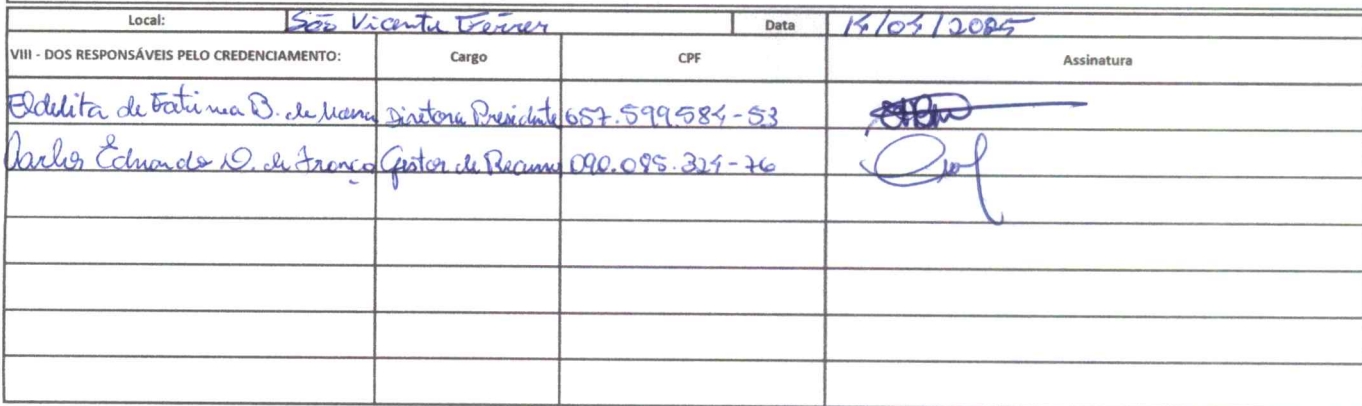 Local: São Vicente Férrer Data 14/04/2025
VIII - DOS RESPONSÁVEIS PELO CREDENCIAMENTO: Cargo CPF Assinatura
Eldelita de Fatima B. de Diretora Presidente 657.599.584-53
Carlos Eduardo de França Gestor de Recursos 090.095.324-76